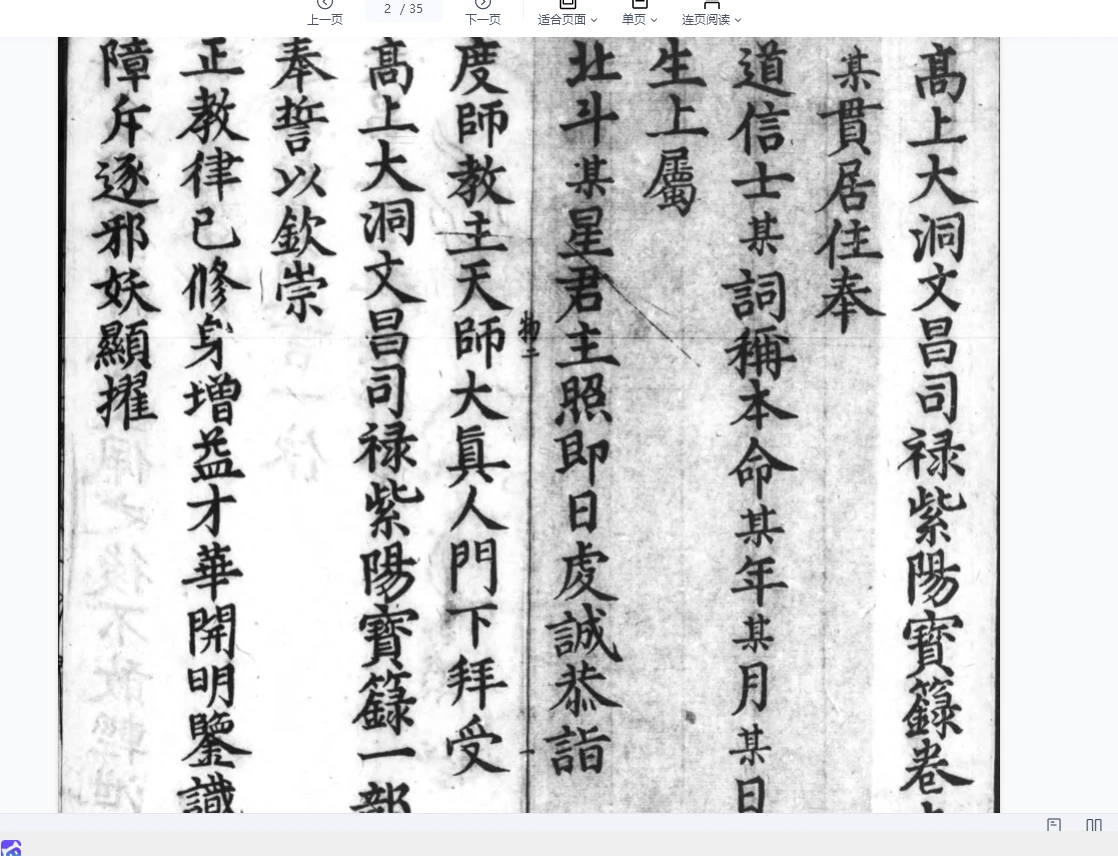 上一页
2 / 35
下一页
适合页面
单页
连页阅读
髙上大洞文昌司禄紫陽寳籙卷上
某貫居住奉
道信士某詞稱本命某年某月某日
生上屬
北斗某星君主照即日虔誠恭詣
物二
一
度師教主天師大真人門下拜受
髙上大洞文昌司禄紫陽寳籙一部
奉誓以欽崇
正教律已修身增益才華開明鑒識
障斥逐邪妖顯擢